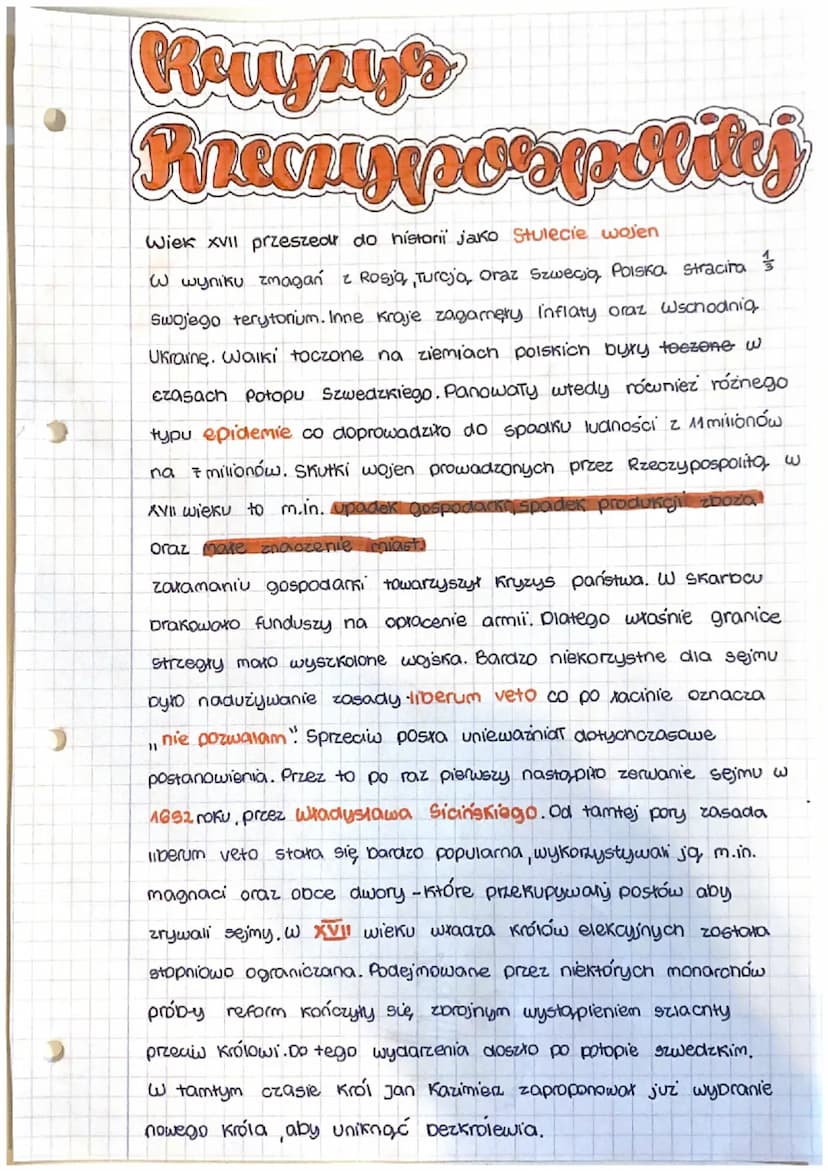 Kryzys
Rzeczypospolitej
Wiek XVII przeszedł do historii jako Stulecie wojen
W wyniku zmagań z Rosją, Turcją oraz Szwecją Polska straciła 1/3
swojego terytorium. Inne kraje zagarnęły Inflaty oraz Wschodnią
Ukrainę. Walki toczone na ziemiach polskich były toczone w
czasach Potopu Szwedzkiego. Panowały wtedy również różnego
typu epidemie co doprowadziło do spadku ludności z 11 milionów
na 7 milionów. Skutki wojen prowadzonych przez Rzeczypospolitą w
XVII wieku to m.in. upadek gospodarki, spadek produkcji zboża
oraz małe znaczenie miast.
załamaniu gospodarki towarzyszył kryzys państwa. W skarbcu
brakowało funduszy na opłacenie armii. Dlatego właśnie granice
strzegły mało wyszkolone wojska. Bardzo niekorzystne dla sejmu
było nadużywanie zasady liberum veto co po łacinie oznacza
„nie pozwalam". Sprzeciw posła unieważniał dotychczasowe
postanowienia. Przez to po raz pierwszy nastąpiło zerwanie sejmu w
1652 roku, przez Władysława Sicińskiego. Od tamtej pory zasada
liberum veto stała się bardzo popularna, wykorzystywali ją m.in.
magnaci oraz obce dwory - które przekupywały posłów aby
zrywali sejmy. W XVII wieku władza królów elekcyjnych została
stopniowo ograniczana. Podejmowane przez niektórych monarchów
próby reform kończyły się zbrojnym wystąpieniem szlachty
przeciw królowi. Do tego wydarzenia doszło po potopie szwedzkim.
W tamtym czasie król Jan Kazimierz zaproponował już wybranie
nowego króla, aby uniknąć bezkrólewia.